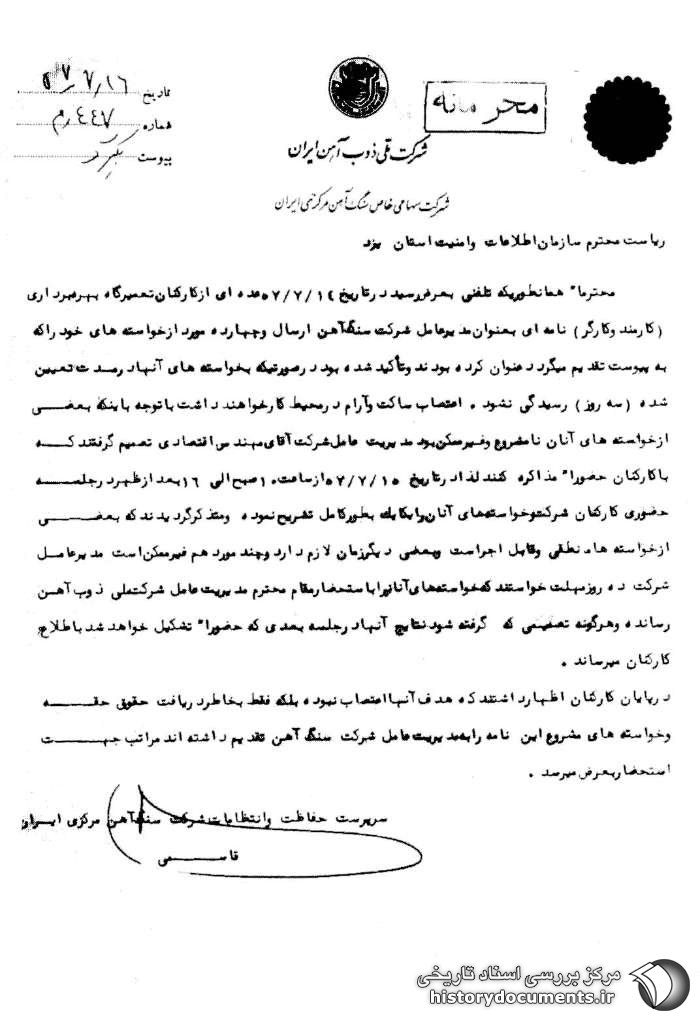 محرمانه
تاریخ ۵۷/۷/۱۶
شماره ۴۴۷/م
پیوست
شرکت ملی ذوب آهن ایران
شرکت سهامی خاص سنگ آهن مرکزی ایران
ریاست محترم سازمان اطلاعات وامنیت استان یزد
محترما" همانطوریکه تلفنی بعرض رسید در تاریخ ۵۷/۷/۱۴ عده ای از کارکنان تعمیرگاه بهره برداری
(کارمند وکارگر) نامه ای بعنوان مدیرعامل شرکت سنگ آهن ارسال وچهارده مورد از خواسته های خود راکه
به پیوست تقدیم میگردد عنوان کرده بودند وتأکید شده بود در صورتیکه بخواسته های آنها در مدت تعیین
شده (سه روز) رسیدگی نشود . اعتصاب ساکت وآرام در محیط کار خواهند داشت با توجه باینکه بعضی
از خواسته های آنان نامشروع وغیرممکن بود مدیریت عامل شرکت آقای مهندس اقتصادی تصمیم گرفتند که
با کارکنان حضورا" مذاکره کنند لذا در تاریخ ۵۷/۷/۱۵ از ساعت ۱۰ صبح الی ۱۶ بعد از ظهر در جلسه
حضوری کارکنان شرکت وخواسته های آنان را یکایک بطور کامل تشریح نموده ومتذکر گردیدند که بعضی
از خواسته ها منطقی وقابل اجراست وبعضی دیگر زمان لازم دارد وچند مورد هم غیرممکن است مدیرعامل
شرکت ده روز مهلت خواستند که خواسته های آنانرا باستحضار مقام محترم مدیریت عامل شرکت ملی ذوب آهن
رسانده وهرگونه تصمیمی که گرفته شود نتایج آنها در جلسه بعدی که حضورا" تشکیل خواهد شد باطلاع
کارکنان میرساند .
در پایان کارکنان اظهار داشتند که هدف آنها اعتصاب نبوده بلکه فقط بخاطر دریافت حقوق حقه
وخواسته های مشروع این نامه را به مدیریت عامل شرکت سنگ آهن تقدیم داشته اند مراتب جهت
استحضار بعرض میرسد .
سرپرست حفاظت وانتظامات شرکت سنگ آهن مرکزی ایران
قاسمی
مرکز بررسی اسناد تاریخی
historydocuments.ir